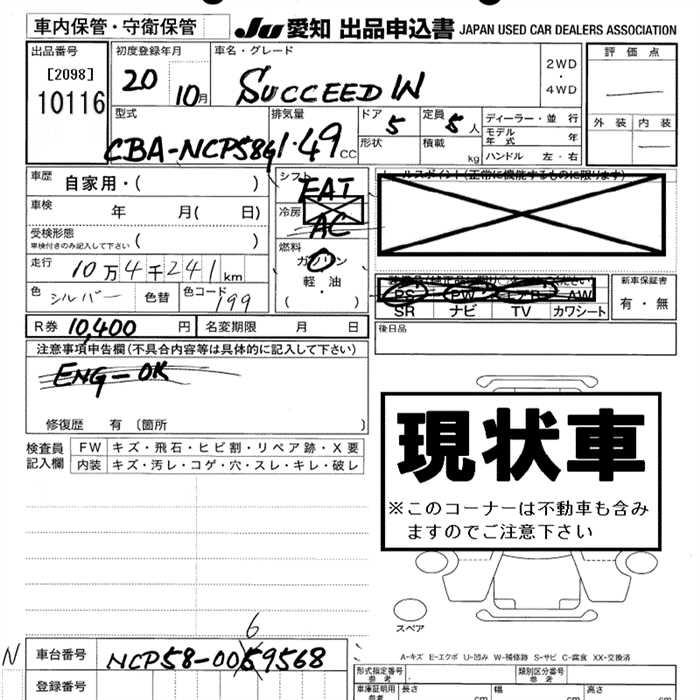 車内保管・守衛保管 JU 愛知 出品申込書 JAPAN USED CAR DEALERS ASSOCIATION
出品番号 初度登録年月 車名・グレード 2WD・4WD 評価点
[2098] 20 10月 SUCCEED W
10116
型式 排気量 ドア 定員 ディーラー・並行 外装 内装
CBA-NCP58G 1.49 CC 5 5人 モデル年式 年
形状 積載 kg ハンドル 左・右
車歴 自家用・( ) シフト FAT セールスポイント(正常に機能するものに限ります)
車検 年 月( 日) 冷房 AC
受検形態 車検付きのみ記入して下さい ( )
燃料 ガソリン
走行 10万4千241km 軽・油
色 シルバー 色替 色コード 199 ( ・ )
PS PW エアB AW 新車保証書
SR ナビ TV カワシート 有・無
R券 10,400 円 名変期限 月 日 後日品
注意事項申告欄(不具合内容等は具体的に記入して下さい)
ENG-OK
修復歴 有 〔箇所 〕
検査員記入欄 FW キズ・飛石・ヒビ割・リペア跡・X要
内装 キズ・汚レ・コゲ・穴・スレ・キレ・破レ
現状車
※このコーナーは不動車も含み
ますのでご注意下さい
スペア
A-キズ E-エクボ U-凹み W-補修跡 S-サビ C-腐食 XX-交換済
N 車台番号 NCP58-0059568 6
形式指定番号 参考 類別区分番号 参考
登録番号 車庫証明用 参考 長さ cm 幅 cm 高さ cm